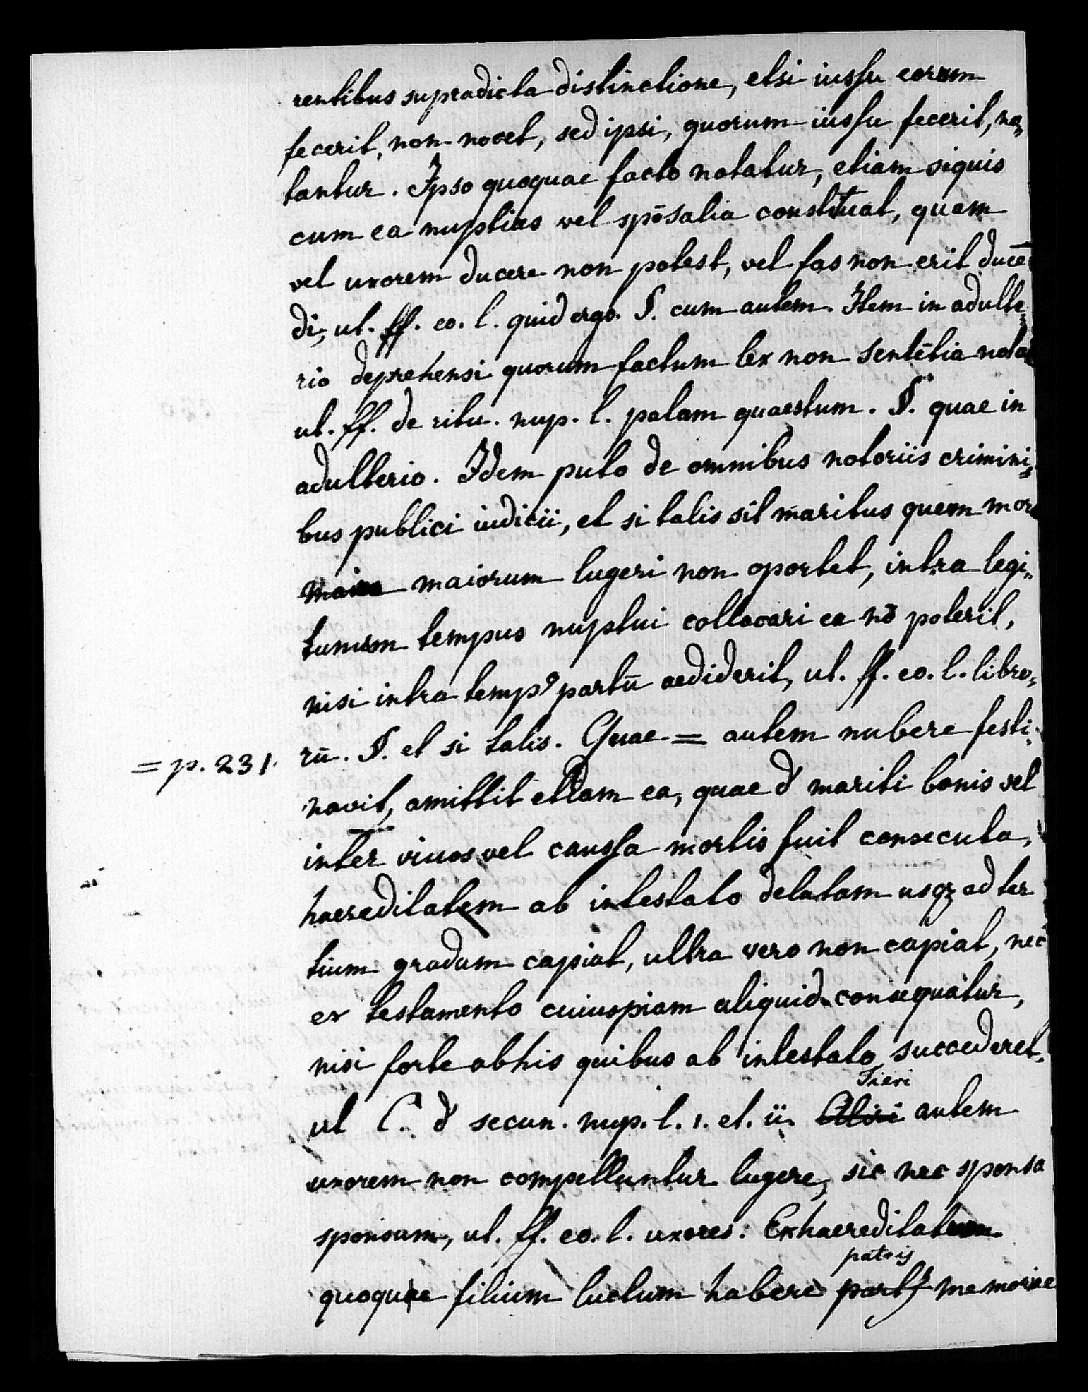 rentibus supradicta distinctione, etsi iussu eorum
fecerit, non nocet, sed ipsi, quorum iussu fecerit, no,
tantur. Ipso quoquae facto notatur, etiam siquis
cum ea nuptias vel spōsalia constituat, quam
vel uxorem ducere non potest, vel fas non erit ducē
di, ut. ff. eo. l. quid ergo. §. cum autem. Item in adulte,
rio deprehensi quorum factum lex non sentētia nota
ut. ff. de ritu. nup. l. palam quaestum. §. quae in
adulterio. Idem puto de omnibus notoriis crimini,
bus publici iudicii, et si talis sit maritus quem mor
maiorum lugeri non oportet, intra legi,
tumum tempus nuptui collocari ea nō poterit,
nisi intra temp9 partū aediderit, ut. ff. eo. l. libro,
= p. 231. rū. §. et si talis. Quae = autem nubere festi,
navit, amittit etiam ea, quae d mariti bonis vel
inter vivos vel caussa mortis fuit consecuta,
haereditatem ab intestato delatam usq3 ad ter
tium gradum capiat, ultra vero non capiat, nec
ex testamento cuiuspiam aliquid consequatur,
nisi forte abhis quibus ab intestato succederet,
Fieri
ut C. d secun. nup. l. 1. et. ii. autem
uxorem non compelluntur lugere, sic nec sponsa
sponsum, ut. ff. eo. l. uxores: Exhaereditatum
patris
quoquae filium luctum habere memoriae